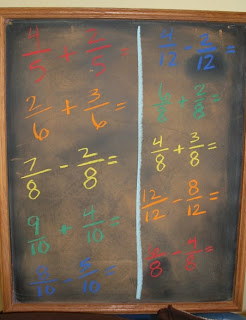 4/5 + 2/5 =
2/6 + 3/6 =
7/8 - 2/8 =
9/10 + 4/10 =
/10 - /10 =
/12 - /12 =
6/8 + 2/8 =
4/8 + 3/8 =
12/12 - 8/12 =
/8 - /8 =